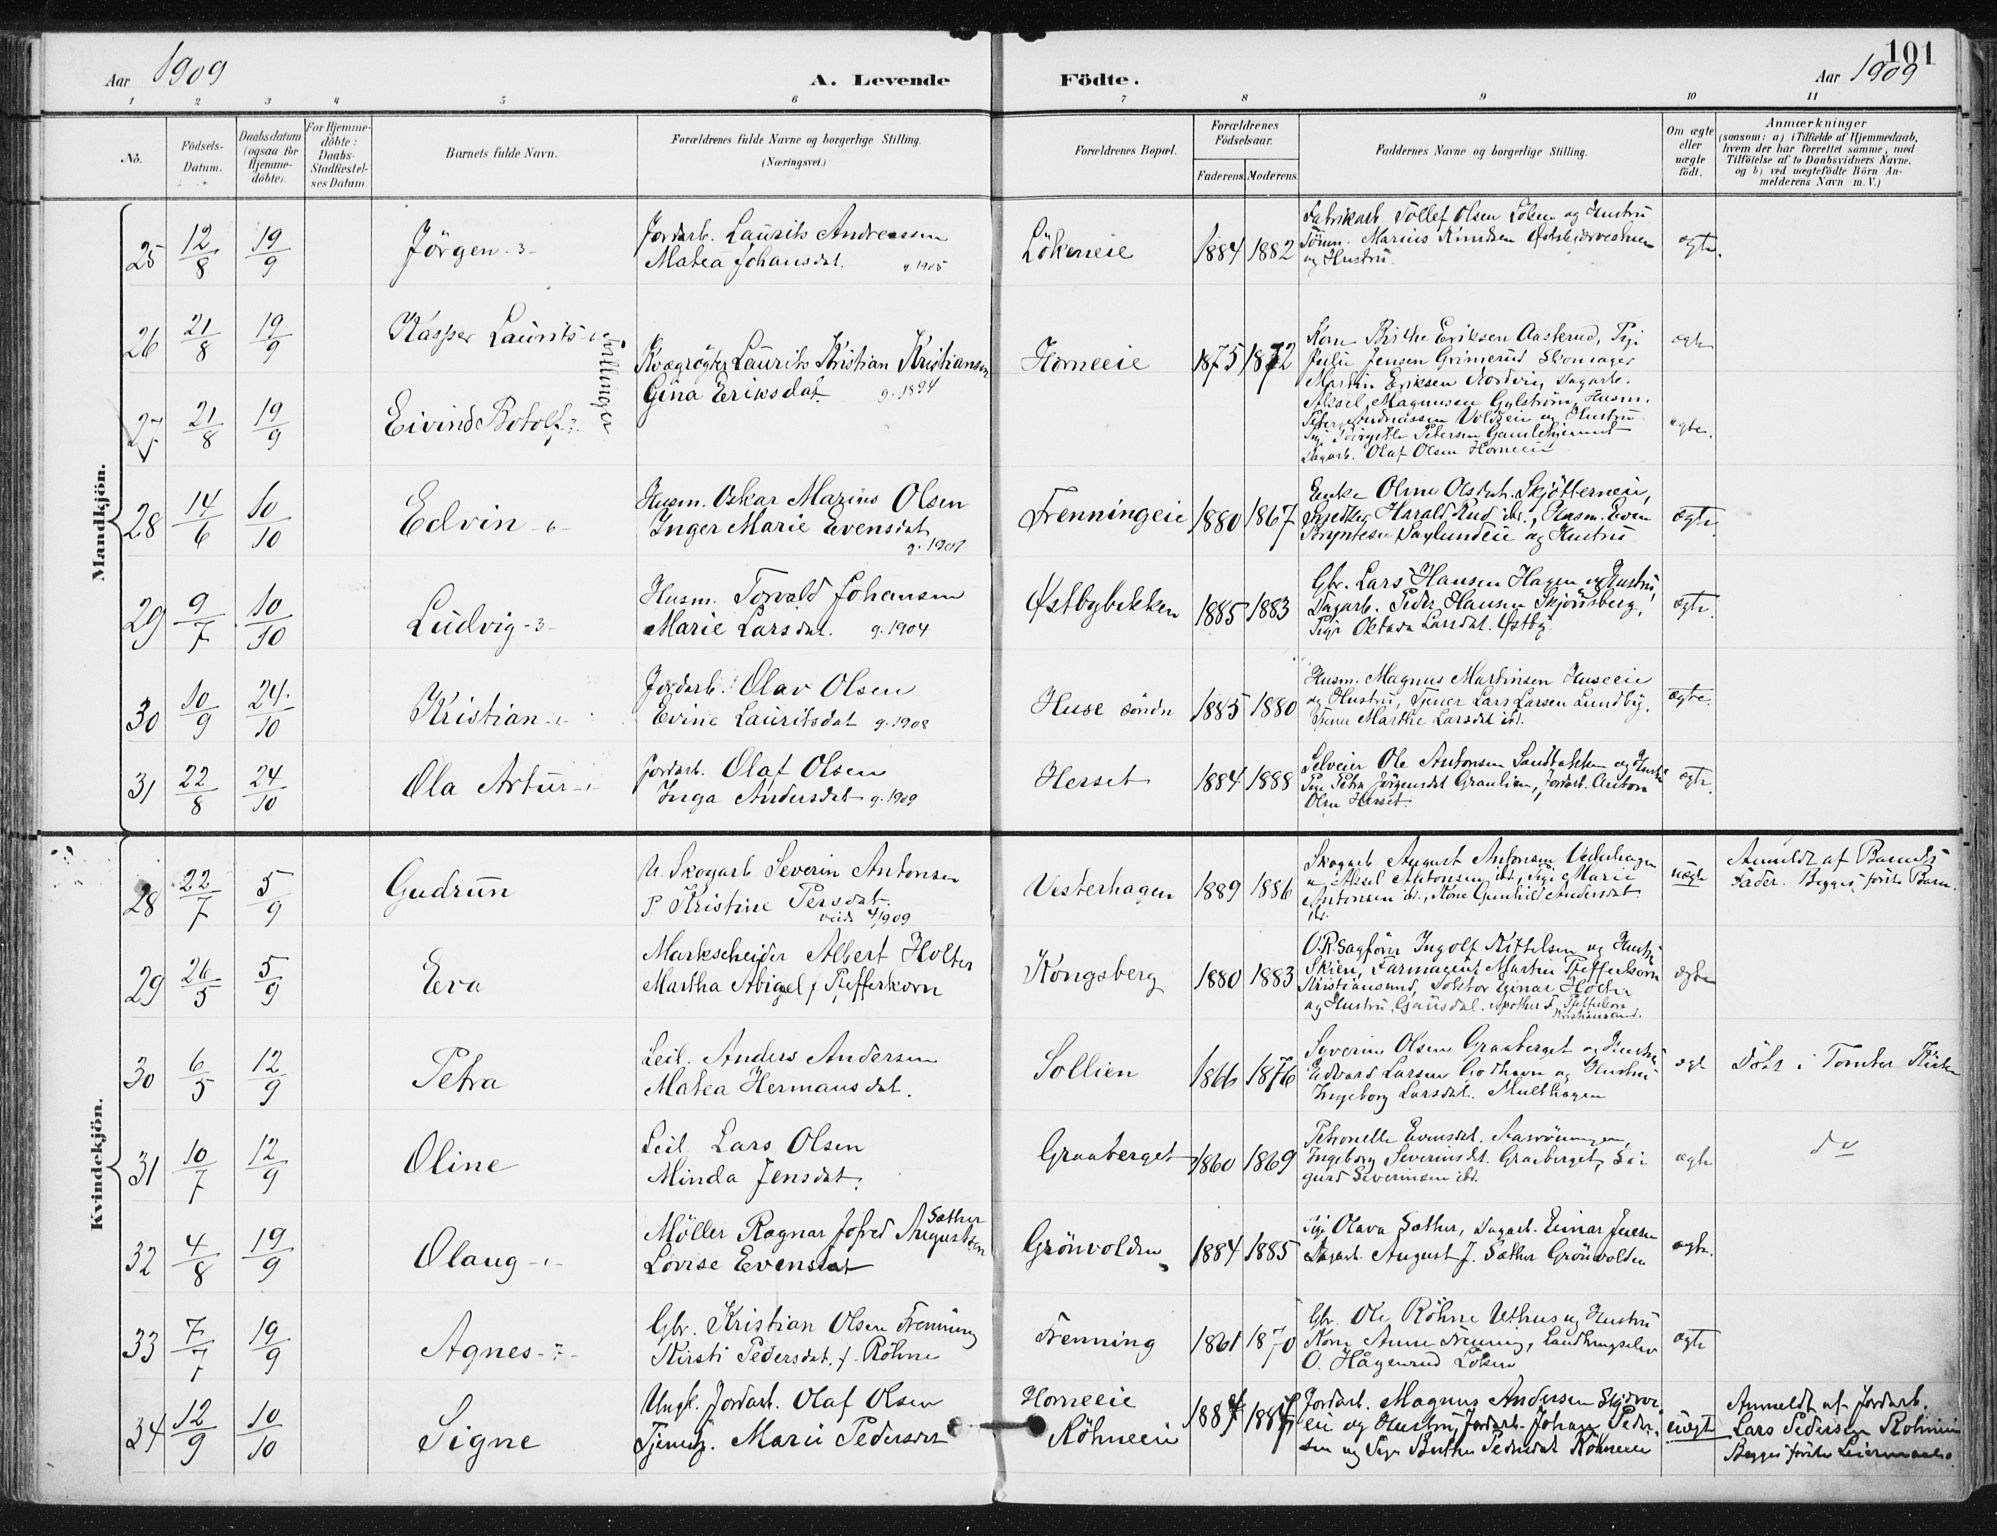 101
Aar 1909
A. Levende
Födte.
Aar 1909
1 2 3 4 5 6 7 8 9 10 11
No.
Födsels-Datum.
Daabsdatum (ogsaa for Hjemme-döbte).
For Hjemme-döbte: Daabs-Stadfæstel-ses Datum
Barnets fulde Navn.
Forældrenes fulde Navne og borgerlige Stilling.
(Næringsvei.)
Forældrenes Bopæl.
Forældrenes Födselsaar.
Faderens. Moderens.
Faddernes Navne og borgerlige Stilling.
Om ægte eller uægte födt.
Anmærkninger
(saasom: a) i Tilfælde af Hjemmedaab,
hvem der har forrettet samme, med
Tilföielse af to Daabsvidners Navne.
og b) ved uægtefödte Börn An-
melderens Navn m. V.)
Mandkjön.
25 12/8 19/9 Jörgen -3-
Jordarb. Laurits Andreassen
Matea Johansdat. g. 1905
Lökeneie 1884 1882
Fabrikarb. Tollef Olsen Löken og Hustru
Tömm. Marius Knudsen
og Hustru.
ægte.
26 21/8 19/9 Kasper Laurits
Tvillinger
Kvægrögter Laurits Kristian Kristiansen
Gina Eriksdat. g. 1894
Horneeie 1875 1872
Kone Birthe Eriksen Aasterud, Pige
Julie Jensen Grimerud Skomager
Martin Eriksen Nordvi, Dagarb.
Aksel Magnussen Gylström, Husm.
Peter Andreassen Voldeie og Hustru
Pige Birgitte Petersen Gamlehjemmet
Dagarb. Olaf Olsen Horneeie
ægte
27 21/8 19/9 Eivind Botolf
ægte.
28 14/6 10/10 Edvin -6-
Husm. Oskar Marius Olsen
Inger Marie Evensdat
g. 1901
Frenningeie 1880 1867
Enke Oline Olsdat. Skjötterneie,
Snedker Harald Rud ibd., Husm. Even
Bryntesen Saxlundeie og Hustru
ægte.
29 9/7 10/10 Ludvig -3-
Husm. Torvald Johansen
Marie Larsdat. g. 1904
Østbybekken 1885 1883
Gbr. Lars Hansen Hagen og Hustru,
Dagarb. Peder Hansen Skjönsberg,
Pige Oktava Larsdat. Østby
ægte.
30 10/9 24/10 Kristian -1-
Jordarb. Olav Olsen
Evine Lauritsdat g. 1908
Huse söndre 1883 1880
Husm. Magnus Martinsen Huseeie
og Hustru, Tjener Lars Larsen Lundby,
Tjener Marthe Larsdat ibd.
ægte.
31 22/8 24/10 Ola Artur -1-
Jordarb. Olaf Olsen
Inga Andersdat g. 1909
Herset 1884 1888
Selveier Ole Antonsen Sandbakken og Hustru
Pige Petra Jörgensdat Graulien, Jordarb. Anton
Olsen Herset.
ægte.
Kvindekjön.
28 22/7 5/9 Gudrun
U. Skogarb. Severin Antonsen
P. Kristine Persdat.
viede 4/1909
Vesterhagen 1889 1886
Skogarb August Antonsen Vesterhagen
Aksel Antonsen ibd., Pige Marie
Antonsen ibd., Kone Gunhild Andersdat
ibd.
uægte
Anmeldt af Barnets
Fader. Begges förste Barn.
29 26/5 5/9 Eva
Markscheider Albert Holter
Martha Abigael f. Pfefferkorn
Kongsberg 1880 1883
O.R.sagförer Ingolf Kittelsen og Hustru
Skien, Farmaceut Martin Pfefferkorn
Kristiansund, Doktor Einar Holter
og Hustru, Gausdal. Apother F. Pfefferkorn
Kristiansund.
ægte
30 6/5 12/9 Petra
Leil. Anders Andersen
Matea Hermansdat.
Sollien 1866 1876
Severin Olsen Graaberget og Hustru
Edvard Larsen Godhavn og Hustru
Ingeborg Larsdat. Multhagen
ægte
Döbt i Tomter Kirke
31 10/7 12/9 Oline
Leil. Lars Olsen
Minda Jensdat.
Graaberget 1860 1869
Petronelle Evensdat. Aasröningen,
Ingeborg Severinsdt. Graaberget, Si-
gurd Severinsen ibd.
ægte
do
32 4/8 19/9 Olaug -1-
Möller Ragnar Jofred Augustsen Sæther
Lovise Evensdat
Grönvolden 1884 1885
Pige Olava Sæther, Dagarb. Einar Jensen
Dagarb. August J. Sæther Grönvolden
ægte.
33 7/7 19/9 Agnes -7-
Gbr. Kristian Olsen Frenning
Kirsti Pedersdat. f. Röhne
Frenning 1861 1870
Gbr. Ole Röhne Uthus og Hustru
Kone Anne Frenning, Landbrugselev
O. Hågenrud Löken
ægte
34 12/9 10/10 Signe
Ungk. Jordarb. Olaf Olsen
Tjenestp. Marie Pedersdat
Horneeie
Röhneeie
Jordarb. Magnus Andersen
eie og Hustru, Jordarb. Johan Peder-
sen og Pige Berthe Pedersdat Röhneeie
uægte
Anmeldt af Jordarb.
Lars Pedersen Röhneeie
Begges förste Leiermaal.